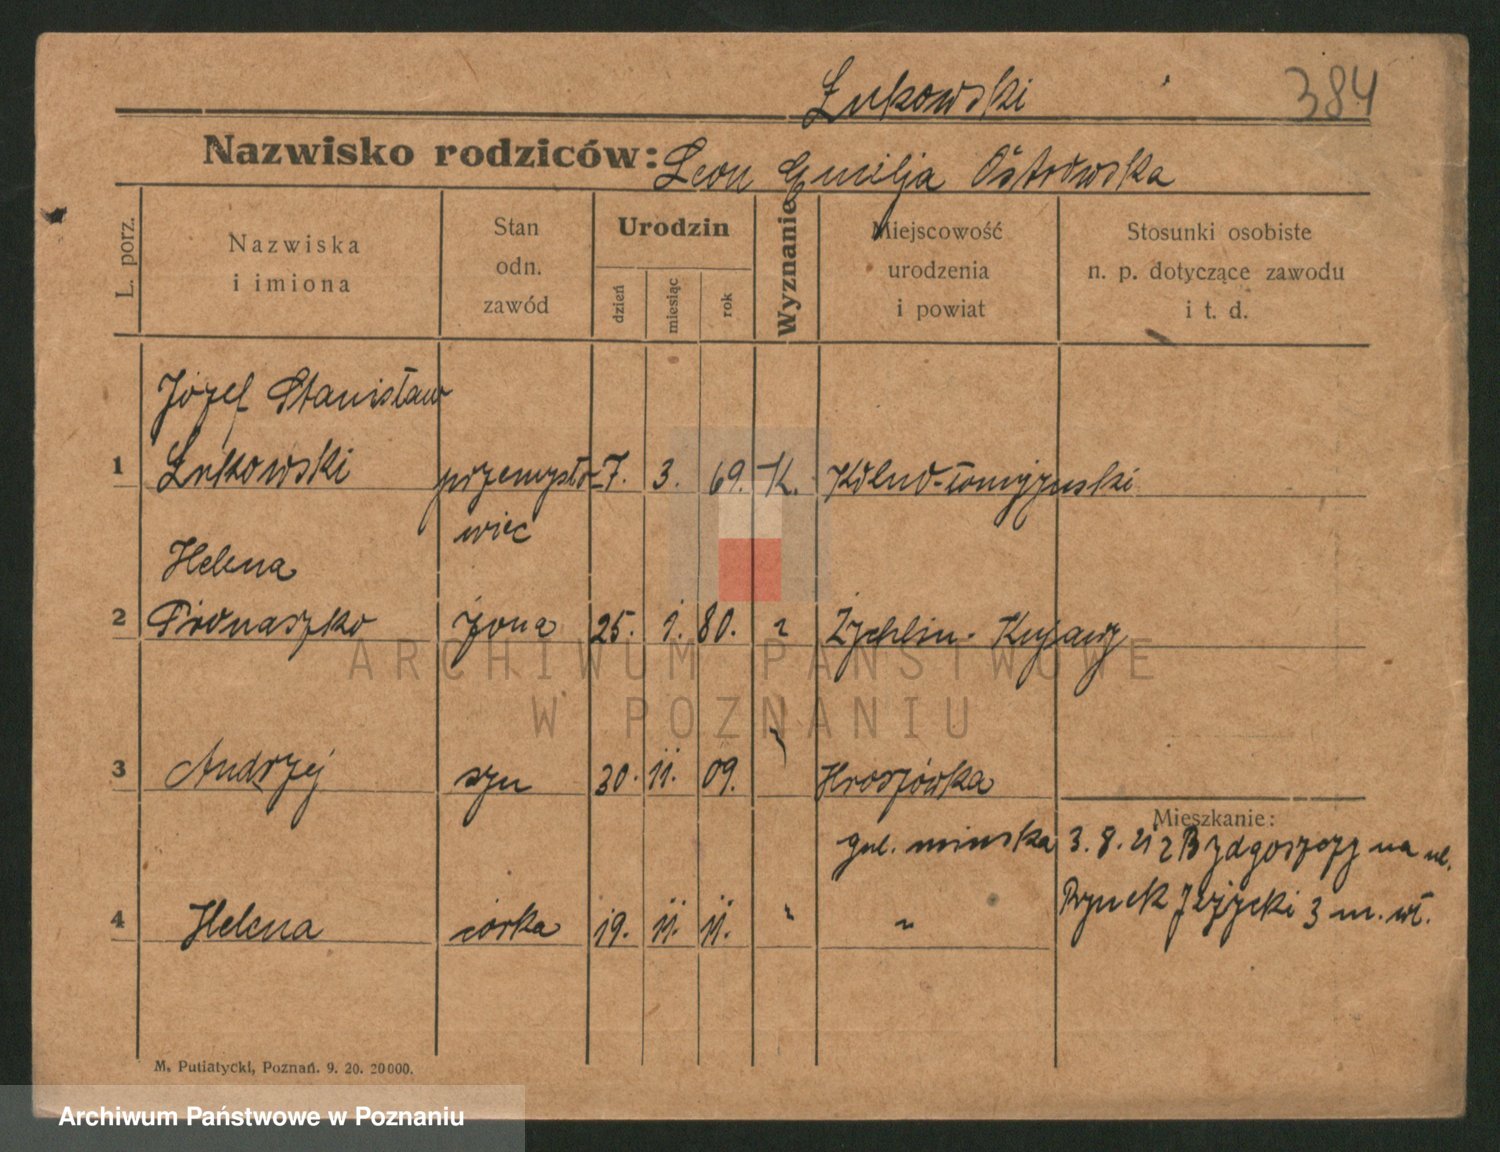 Łukowski
384
Nazwisko rodziców: Leon Emilja Ostrowska
L. porz.
Nazwiska
i imiona
Stan
odn.
zawód
Urodzin
dzień
miesiąc
rok
Wyznanie
Miejscowość
urodzenia
i powiat
Stosunki osobiste
n. p. dotyczące zawodu
i t. d.
Józef Stanisław
1 Łukowski przemysło- 7. 3. 69. K. Kolno-łomżyński
wiec
Helena
2 żona 25. 1. 80. " Żychlin - Kujawy
3 Andrzej syn 30. 11. 09. " Hroszówka
gub. mińska
4 Helena córka 19. 11. 11. " "
Mieszkanie:
3.8.21 z Bydgoszczy na ul.
Rynek Jeżycki 3 m. wł.
M. Putiatycki, Poznań. 9. 20. 20000.
ARCHIWUM PAŃSTWOWE
W POZNANIU
Archiwum Państwowe w Poznaniu